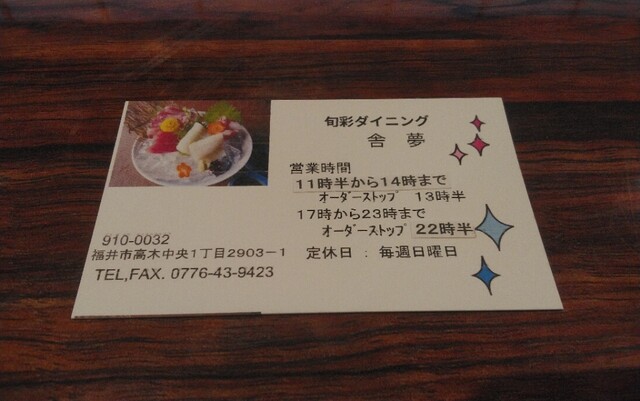 旬彩ダイニング
舎 夢
営業時間
11時半から14時まで
オーダーストップ 13時半
17時から23時まで
オーダーストップ 22時半
定休日 : 毎週日曜日
910-0032
福井市高木中央1丁目2903-1
TEL,FAX. 0776-43-9423